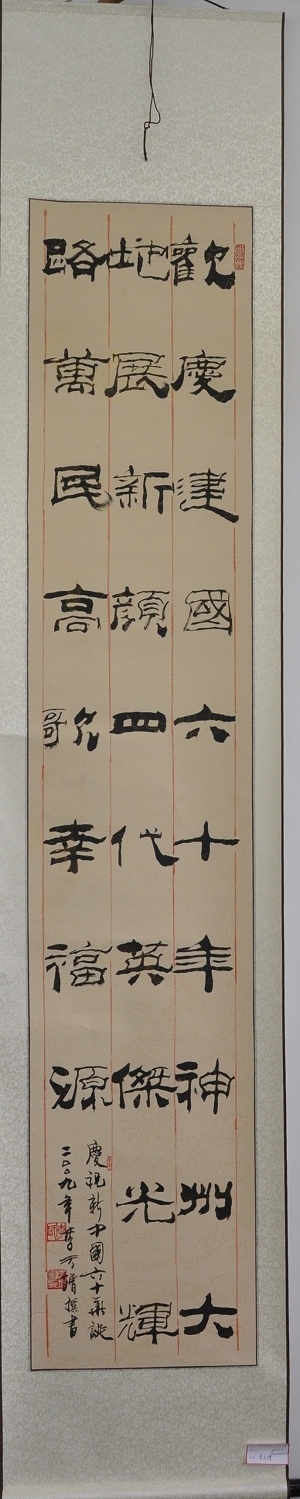 歡慶建國六十年神州大
地展新顏四代英傑光輝
路萬民高歌幸福源
慶祝新中國六十華誕
二〇〇九年李万增撰書